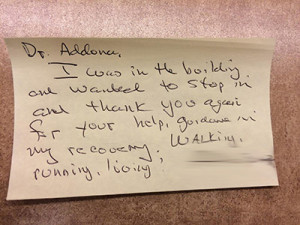 Dr. Addona,
I was in the building
and wanted to stop in
and thank you again
for your help, guidance in
my recovery; Walking,
running, living